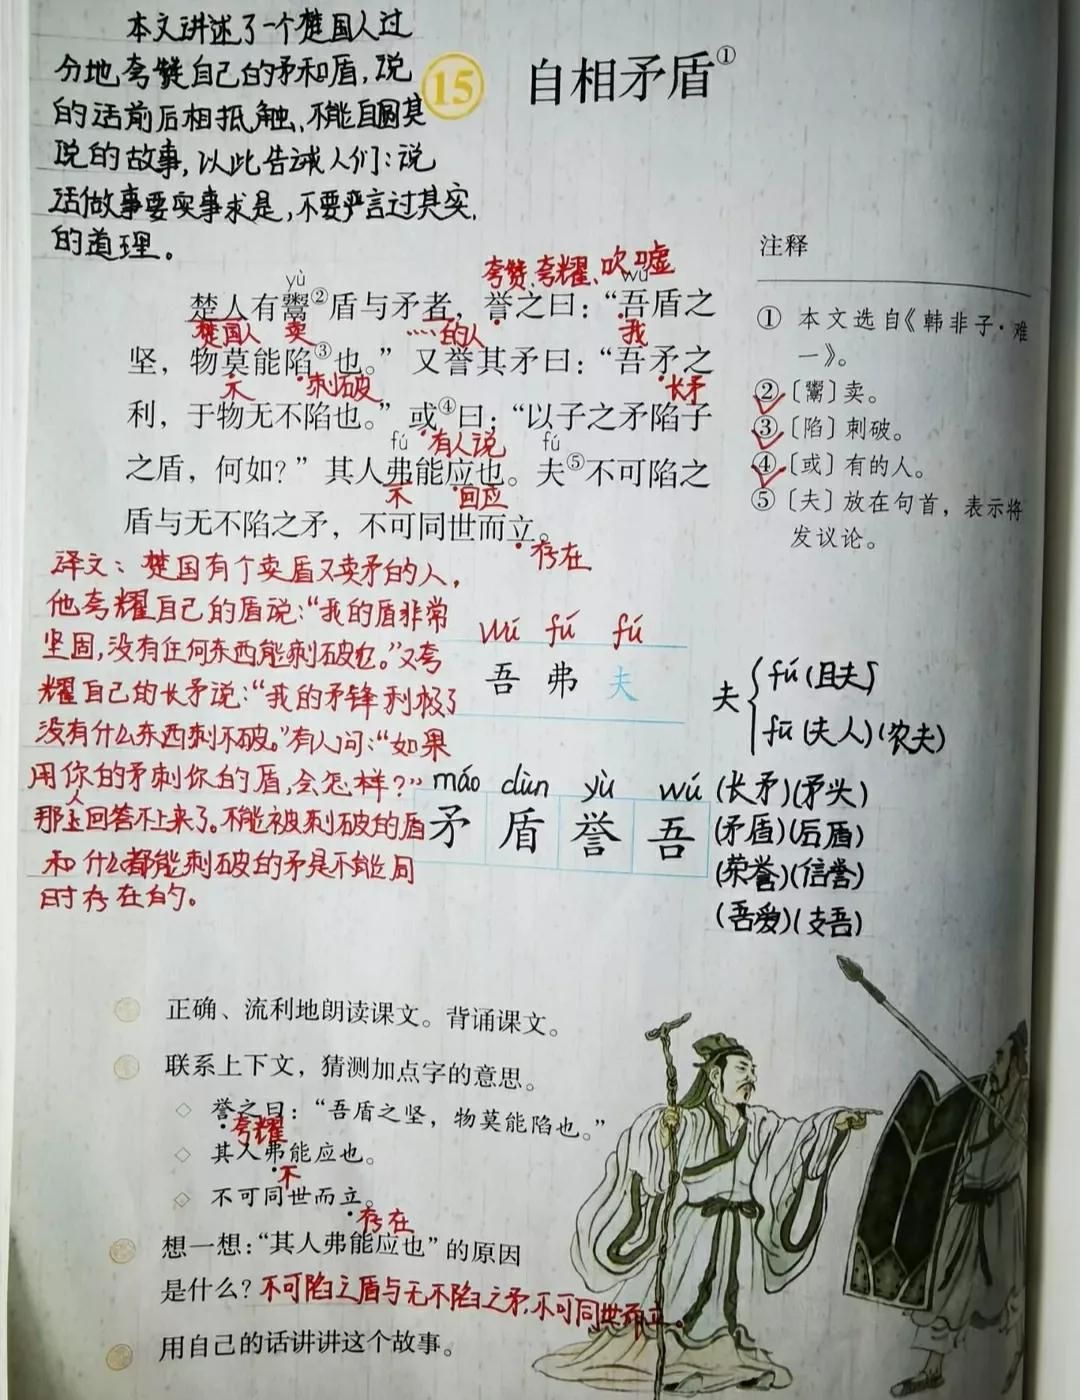 本文讲述了一个楚国人过
分地夸赞自己的矛和盾,说
的话前后相抵触,不能自圆其
说的故事,以此告诫人们:说
话做事要实事求是,不要严言过其实,
的道理。
15 自相矛盾①
夸赞、夸耀、吹嘘
yù wú
楚人有鬻②盾与矛者,誉之曰:“吾盾之
楚国人 卖 ……的人 我
坚,物莫能陷③也。”又誉其矛曰:“吾矛之
不 刺破 长矛
利,于物无不陷也。”或④曰:“以子之矛陷子
fú 有人说 fú
之盾,何如?”其人弗能应也。夫⑤不可陷之
不 回应
盾与无不陷之矛,不可同世而立。
存在
注释
① 本文选自《韩非子·难
一》。
② 〔鬻〕卖。
③ 〔陷〕刺破。
④ 〔或〕有的人。
⑤ 〔夫〕放在句首,表示将
发议论。
译文:楚国有个卖盾又卖矛的人,
他夸耀自己的盾说:“我的盾非常
坚固,没有任何东西能刺破它。”又夸
耀自己的长矛说:“我的矛锋利极了
没有什么东西刺不破。”有人问:“如果
用你的矛刺你的盾,会怎样?”
那人回答不上来了。不能被刺破的盾
和什么都能刺破的矛是不能同
时存在的。
wú fú fú
吾 弗 夫
夫 fú(且夫)
fū(夫人)(农夫)
máo dùn yù wú
矛 盾 誉 吾
(长矛)(矛头)
(矛盾)(后盾)
(荣誉)(信誉)
(吾爱)(支吾)
正确、流利地朗读课文。背诵课文。
联系上下文,猜测加点字的意思。
◇ 誉之曰:“吾盾之坚,物莫能陷也。”
夸耀
◇ 其人弗能应也。
不
◇ 不可同世而立。
存在
想一想:“其人弗能应也”的原因
是什么?不可陷之盾与无不陷之矛,不可同世而立。
用自己的话讲讲这个故事。